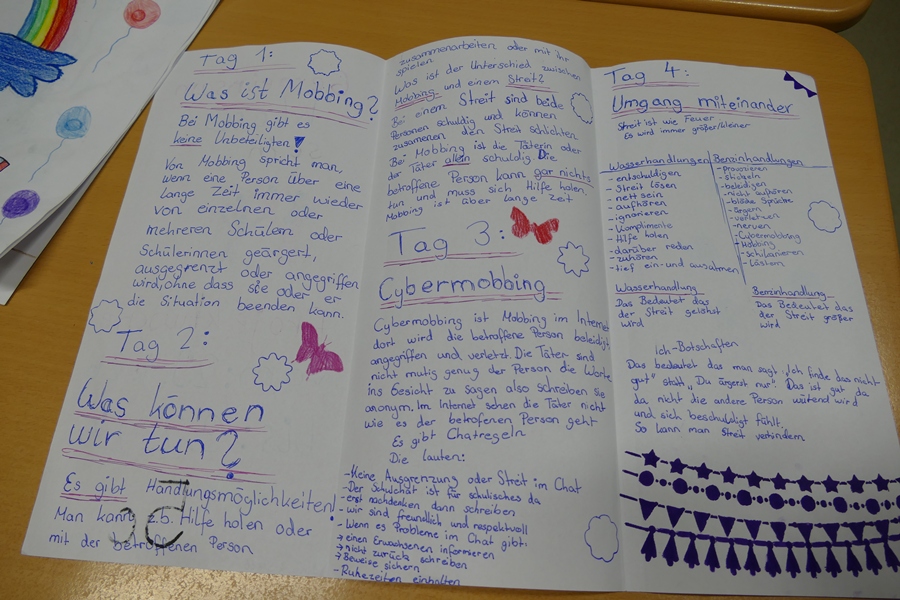 Tag 1:
Was ist Mobbing?
Bei Mobbing gibt es
keine Unbeteiligten!
Von Mobbing spricht man,
wenn eine Person über eine
lange Zeit immer wieder
von einzelnen oder
mehreren Schülern oder
Schülerinnen geärgert,
ausgegrenzt oder angegriffen
wird, ohne dass sie oder er
die Situation beenden kann.
Tag 2:
Was können
wir tun?
Es gibt Handlungsmöglichkeiten!
Man kann z.b. Hilfe holen oder
mit der betroffenen Person
zusammenarbeiten oder mit ihr
spielen.
Was ist der Unterschied zwischen
Mobbing und einem Streit?
Bei einem Streit sind beide
Personen schuldig und können
zusammen den Streit schlichten.
Bei Mobbing ist die Täterin oder
der Täter allein schuldig. Die
betroffene Person kann gar nichts
tun und muss sich Hilfe holen.
Mobbing ist über lange Zeit
Tag 3:
Cybermobbing
Cybermobbing ist Mobbing im Internet
dort wird die betroffene Person beleidigt
angegriffen und verletzt. Die Täter sind
nicht mutig genug der Person die Worte
ins Gesicht zu sagen also schreiben sie
anonym. Im Internet sehen die Täter nicht
wie es der betrofenen Person geht
Es gibt Chatregeln
Die lauten:
-Keine Ausgrenzung oder Streit im Chat
-Der Schulchat ist für schulisches da
-erst nachdenken dann schreiben
-wir sind freundlich und respektvoll
-Wenn es Probleme im Chat gibt:
→ einen Erwachsenen informieren
→ nicht zurück schreiben
→ Beweise sichern
-Ruhezeiten einhalten
Tag 4:
Umgang miteinander
Streit ist wie Feuer
Es wird immer größer/kleiner
Wasserhandlungen
- entschuldigen
- Streit lösen
- nett sein
- aufhören
- ignorieren
- Komplimente
- Hilfe holen
- darüber reden
- zuhören
- tief ein- und ausatmen
Benzinhandlungen
- provozieren
- beleidigen
- nicht aufhören
- blöde Sprüche
- ärgern
- verletzen
- nerven
- Cybermobbing
- Mobbing
- schikanieren
- Lästern
Wasserhandlung
Das Bedeutet das
der Streit gelöscht
wird
Benzinhandlung
Das Bedeutet das
der Streit größer
wird
Ich-Botschaften
Das bedeutet das man sagt „Ich finde das nicht
gut" statt „Du ärgerst nur". Das ist gut da
da nicht die andere Person wütend wird
und sich beschuldigt fühlt.
So kann man Streit verhindern